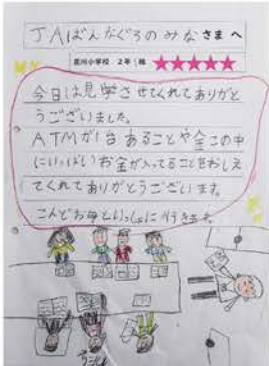 JAばんなぐろのみなさまへ
荒川小学校 2年1組 ★★★★★
今日は見学させてくれてありがと
うございました。
ATMが1台あることや金この中
にいっぱいお金が入ってることをおしえ
てくれてありがとうございます。
こんどお母といっしょに行きます。